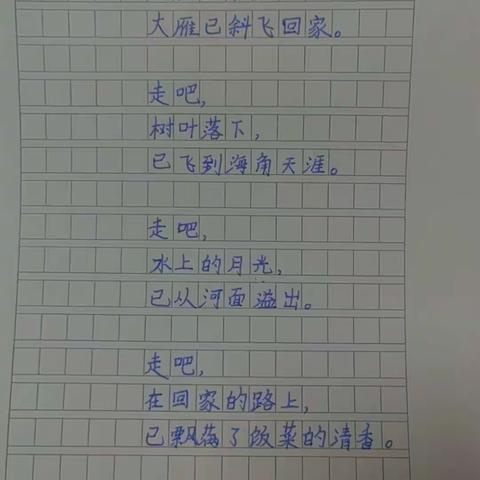 大雁已斜飞回家。
走吧,
树叶落下,
已飞到海角天涯。
走吧,
水上的月光,
已从河面溢出。
走吧,
在回家的路上,
已飘满了饭菜的清香。